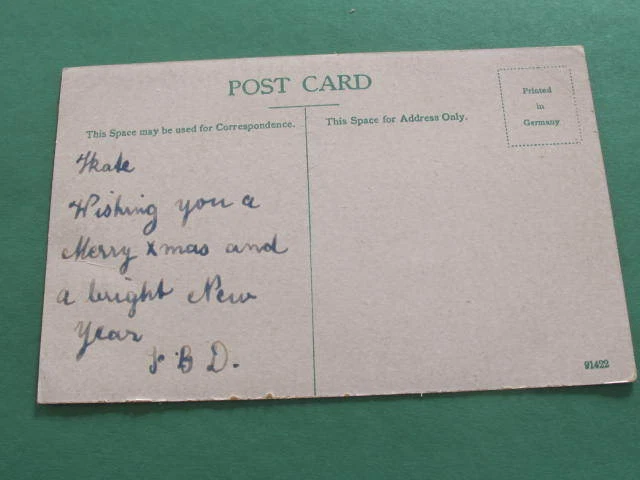 POST CARD
This Space may be used for Correspondence.
This Space for Address Only.
Printed
in
Germany
Kate
Wishing you a
Merry Xmas and
a bright New
Year
B D.
91422